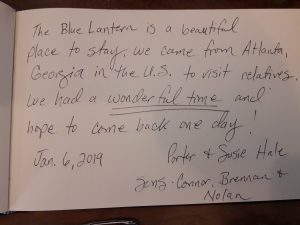 The Blue Lantern is a beautiful
place to stay. We came from Atlanta,
Georgia in the U.S. to visit relatives.
We had a wonderful time and
hope to come back one day!
Jan. 6, 2019 Porter & Susie Hale
Sons - Connor, Brennan &
Nolan